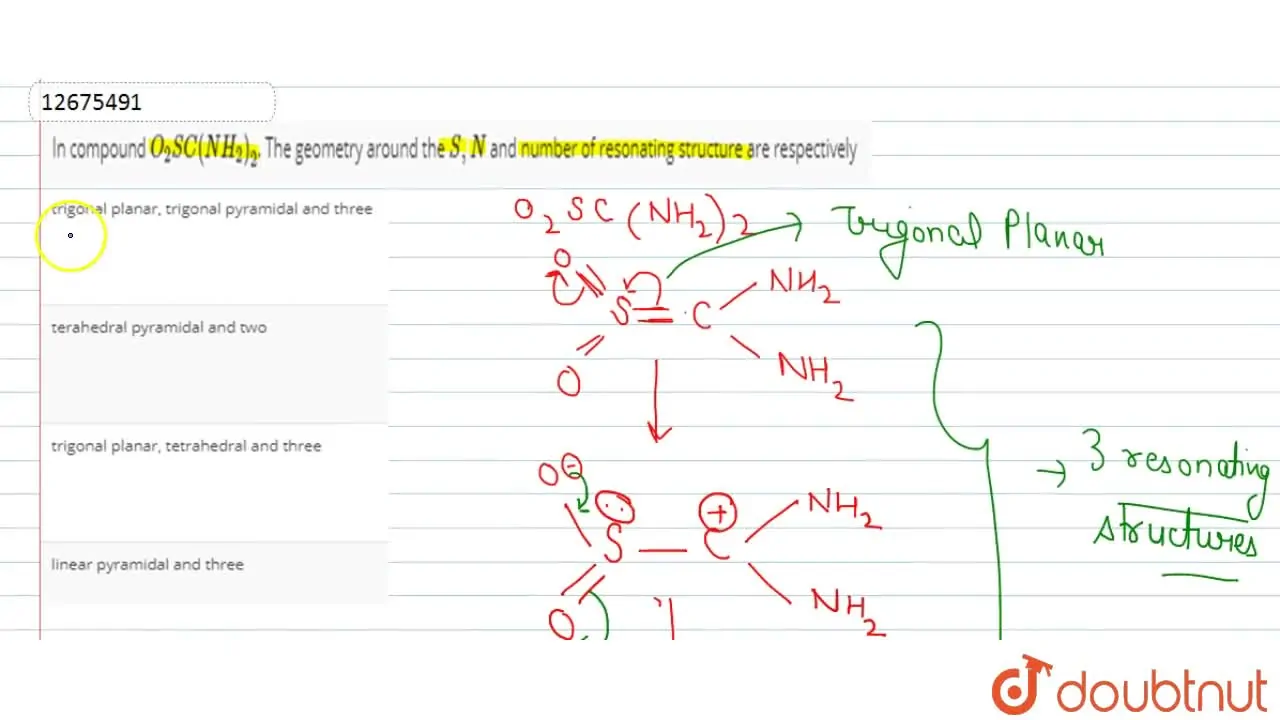 12675491
In compound O₂SC(NH₂)₂. The geometry around the S, N and number of resonating structure are respectively
trigonal planar, trigonal pyramidal and three
terahedral pyramidal and two
trigonal planar, tetrahedral and three
linear pyramidal and three
O₂SC(NH₂)₂ → Trigonal Planar
O
S = C NH₂
O NH₂
O⊖ NH₂
S — C ⊕
O NH₂
→ 3 resonating
structures
doubtnut